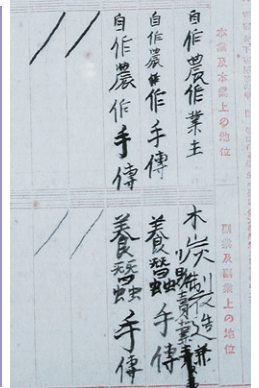 本業及本業上の地位
自作農作業主
自作農作手傳
自作農作手傳
副業及副業上の地位
木炭製造兼
販賣業
養蠶手傳
養蠶手傳